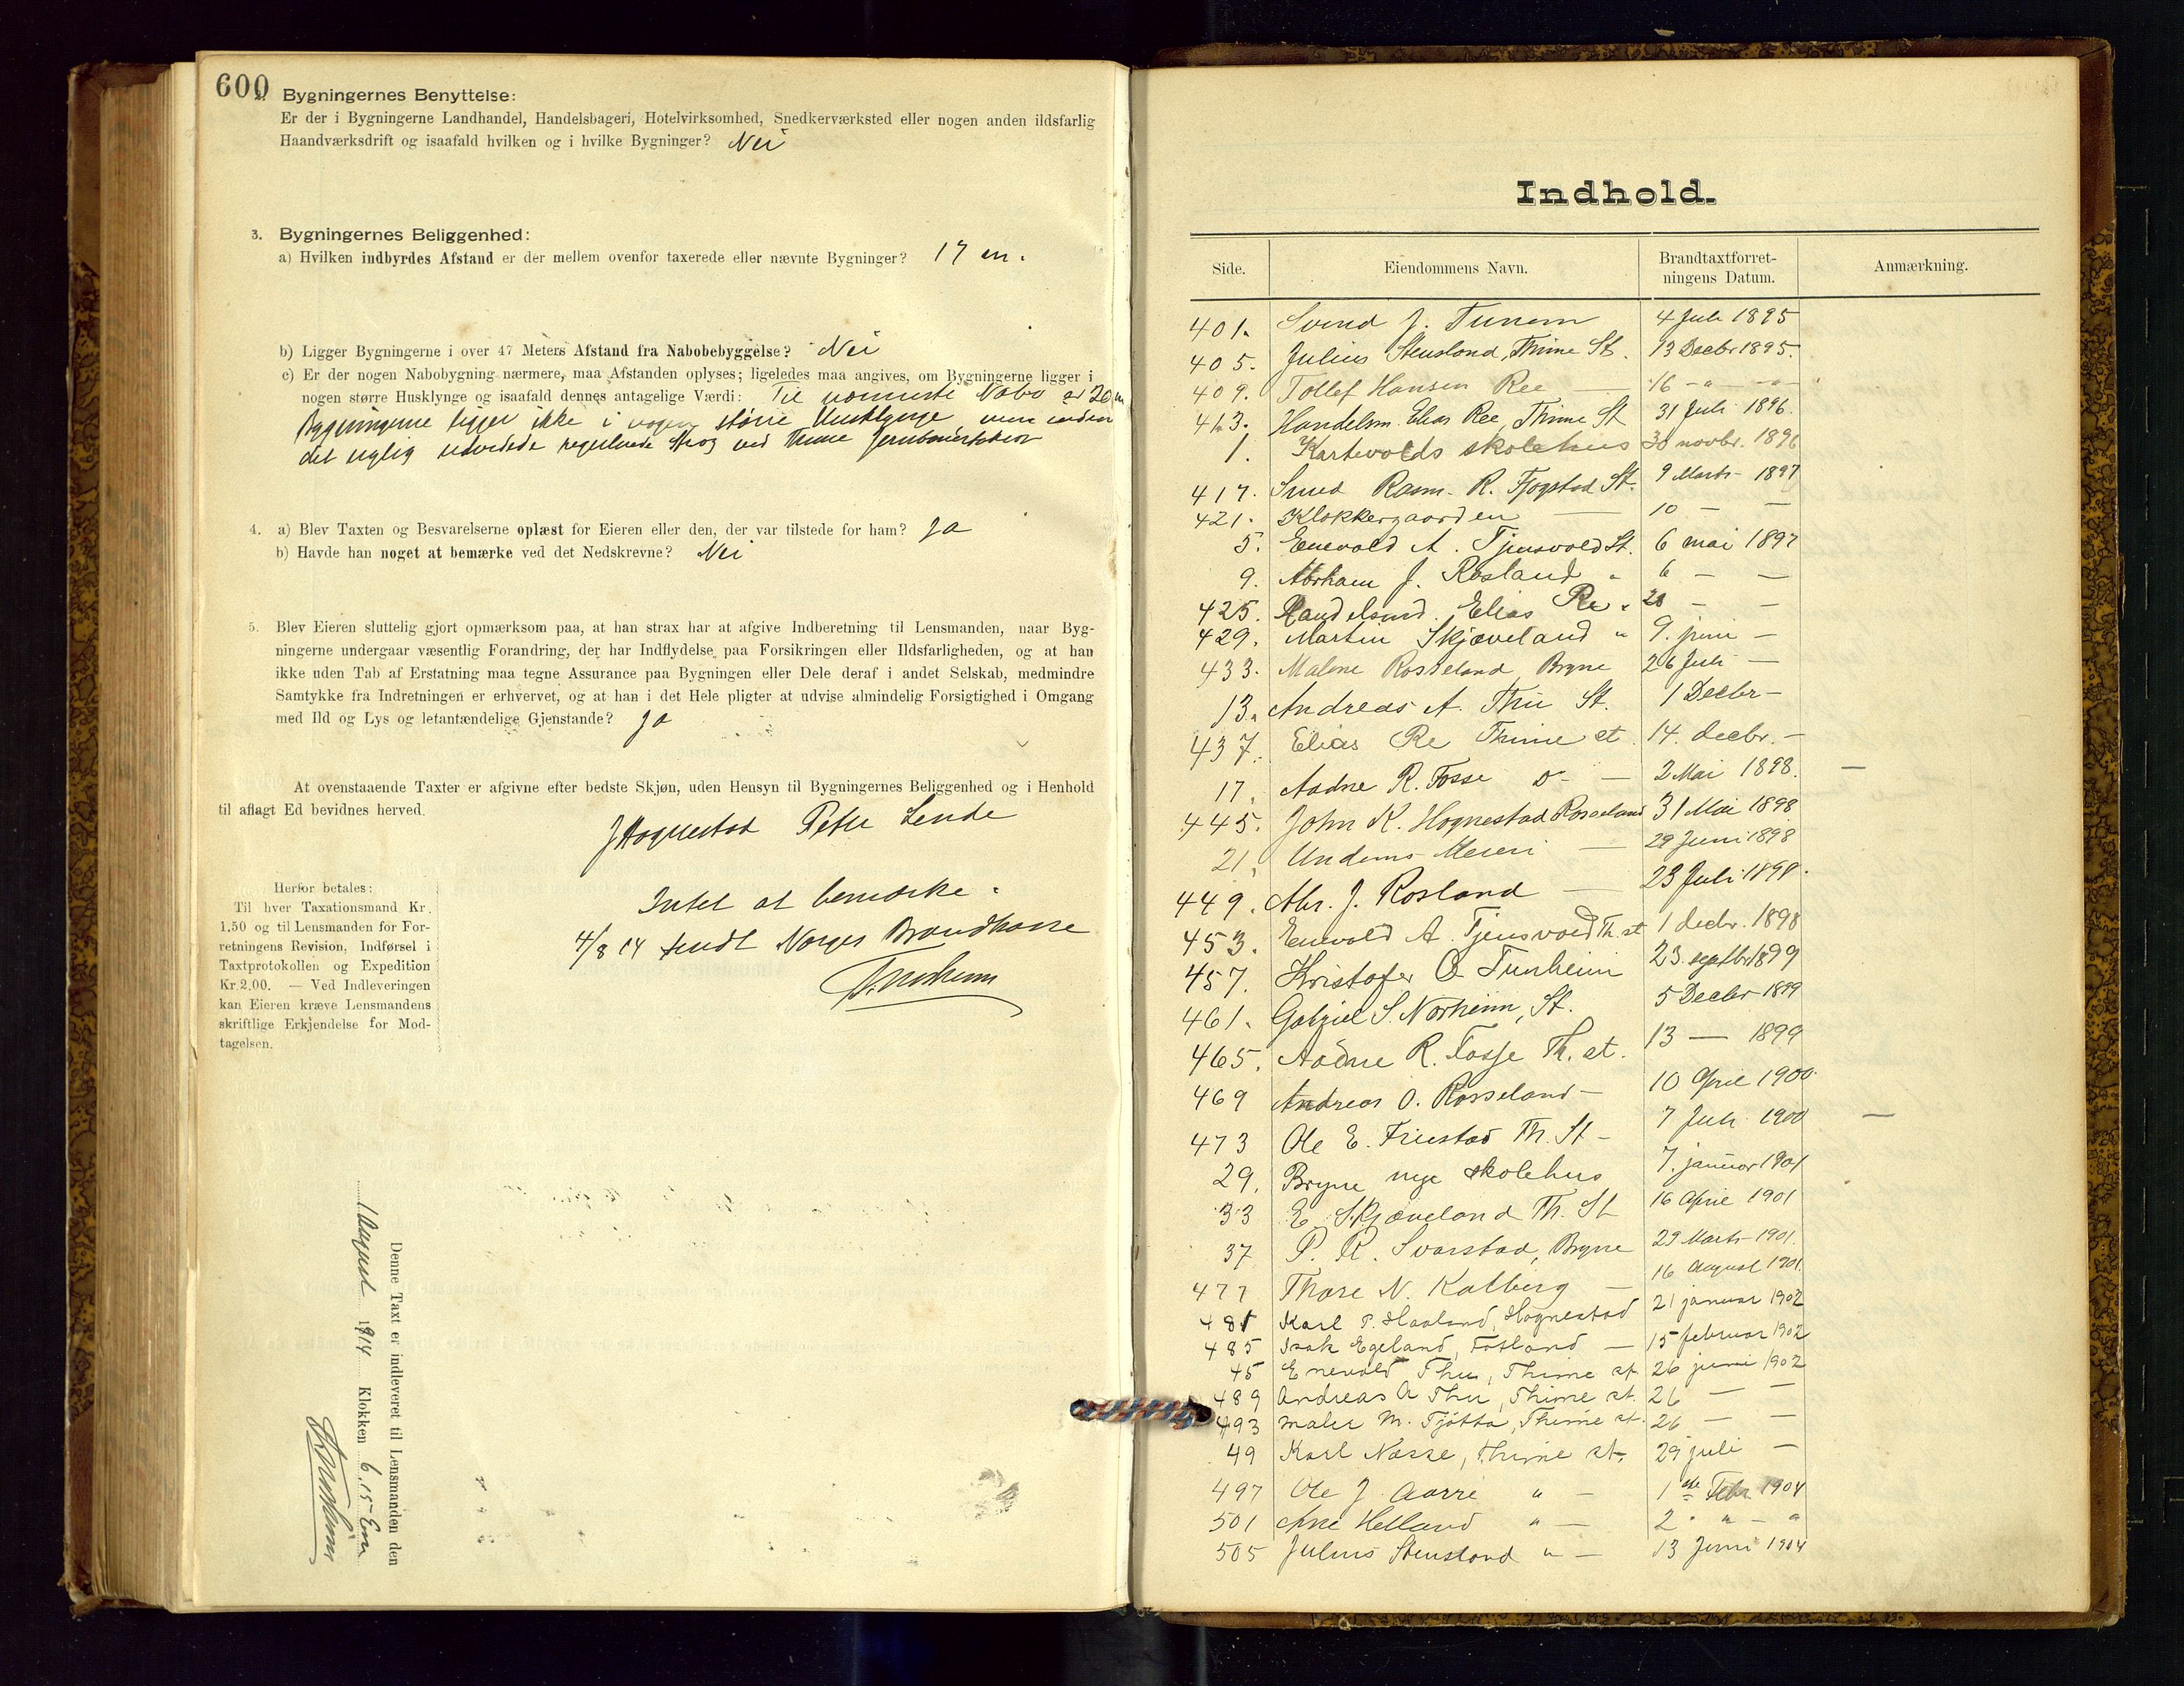 600
2. Bygningernes Benyttelse:
Er der i Bygningerne Landhandel, Handelsbageri, Hotelvirksomhed, Snedkerværksted eller nogen anden ildsfarlig
Haandværksdrift og isaafald hvilken og i hvilke Bygninger? Nei
3. Bygningernes Beliggenhed:
a) Hvilken indbyrdes Afstand er der mellem ovenfor taxerede eller nævnte Bygninger? 17 m.
b) Ligger Bygningerne i over 47 Meters Afstand fra Nabobebyggelse? Nei
c) Er der nogen Nabobygning nærmere, maa Afstanden oplyses; ligeledes maa angives, om Bygningerne ligger i
nogen større Husklynge og isaafald dennes antagelige Værdi: Til nærmeste Nabo er 20 m
Bygningerne ligger ikke i nogen større Husklynge men inden
det uglig udvidede regulerede Strøg ved Thime Jernbanestation
4. a) Blev Taxten og Besvarelserne oplæst for Eieren eller den, der var tilstede for ham? Ja
b) Havde han noget at bemærke ved det Nedskrevne? Nei
5. Blev Eieren sluttelig gjort opmærksom paa, at han strax har at afgive Indberetning til Lensmanden, naar Byg-
ningerne undergaar væsentlig Forandring, der har Indflydelse paa Forsikringen eller Ildsfarligheden, og at han
ikke uden Tab af Erstatning maa tegne Assurance paa Bygningen eller Dele deraf i andet Selskab, medmindre
Samtykke fra Indretningen er erhvervet, og at han i det Hele pligter at udvise almindelig Forsigtighed i Omgang
med Ild og Lys og letantændelige Gjenstande? Ja
At ovenstaaende Taxter er afgivne efter bedste Skjøn, uden Hensyn til Bygningernes Beliggenhed og i Henhold
til aflagt Ed bevidnes herved.
J Hognestad Peter Lende
Intet at bemærke.
4/8 14 sendt Norges Brandkasse
Herfor betales:
Til hver Taxationsmand Kr.
1.50 og til Lensmanden for For-
retningens Revision, Indførsel i
Taxtprotokollen og Expedition
Kr. 2.00. — Ved Indleveringen
kan Eieren kræve Lensmandens
skriftlige Erkjendelse for Mod-
tagelsen.
Denne Taxt er indleveret til Lensmanden den
1 August 1914 Klokken 6.15 Em
Indhold.
Side. Eiendommens Navn. Brandtaxtforret-
ningens Datum. Anmærkning.
401. Svend J. Tunem 4 Juli 1895
405. Julius Stensland, Thime St. 13 Decbr 1895.
409. Tollef Hansen Ree — 16 - " - " -
413. Handelsm. Elias Ree, Thime St 31 Juli 1896.
1. Kartevolds skolehus 30 novbr. 1896
417. Smed Rasm. R. Fjogstad St. 9 Marts 1897
421. Klokkergaarden — 10 — —
5. Enevold A. Tjensvold St. 6 mai 1897
9. Abrham J. Rosland " 6 — —
425. Handelsmd. Elias Re " 28 — —
429. Martin Skjæveland " 9. juni —
433. Malene Rosseland Bryne 26 Juli —
13. Andreas A. Thu St. 1 Decbr —
437. Elias Re Thime st. 14. decbr. —
17. Aadne R. Fosse Do — 2 Mai 1898. —
445. John K. Hognestad Rosseland 31 Mai 1898
21. Undems Meieri — 29 Juni 1898
449. Abr. J. Rosland — 23 Juli 1898.
453. Enevold A. Tjensvold Th. st 1 decbr. 1898
457. Kristofer O. Tunheim 23. septbr 1899
461. Gabriel S. Norheim, St. 5 Decbr 1899
465. Aadne R. Fosse Th. st. 13 — 1899
469 Andreas O. Rosseland — 10 April 1900.
473 Ole E. Friestad Th. St — 7 Juli 1900 —
29. Bryne nye skolehus 7. januar 1901
33 E. Skjæveland Th. St 16 April 1901
37 P. R. Svarstad, Bryne 29 Marts 1901.
477 Thore N. Kalberg — 16 August 1901.
481 Karl T. Haaland, Hognestad 21 januar 1902
485 Isak Egeland, Fosland — 15 februar 1902
45 Enevold Thu, Thime st. 26 juni 1902
489 Andreas A Thu, Thime st. 26 — —
493 maler M. Tjøtta, Thime st. 26 — —
49 Karl Næsse, Thime st. 29 juli —
497 Ole J. Aarre " — 1ste Febr 1904
501 Arne Helland " — 2 " " — "
505 Julius Stensland " — 13 Juni 1904